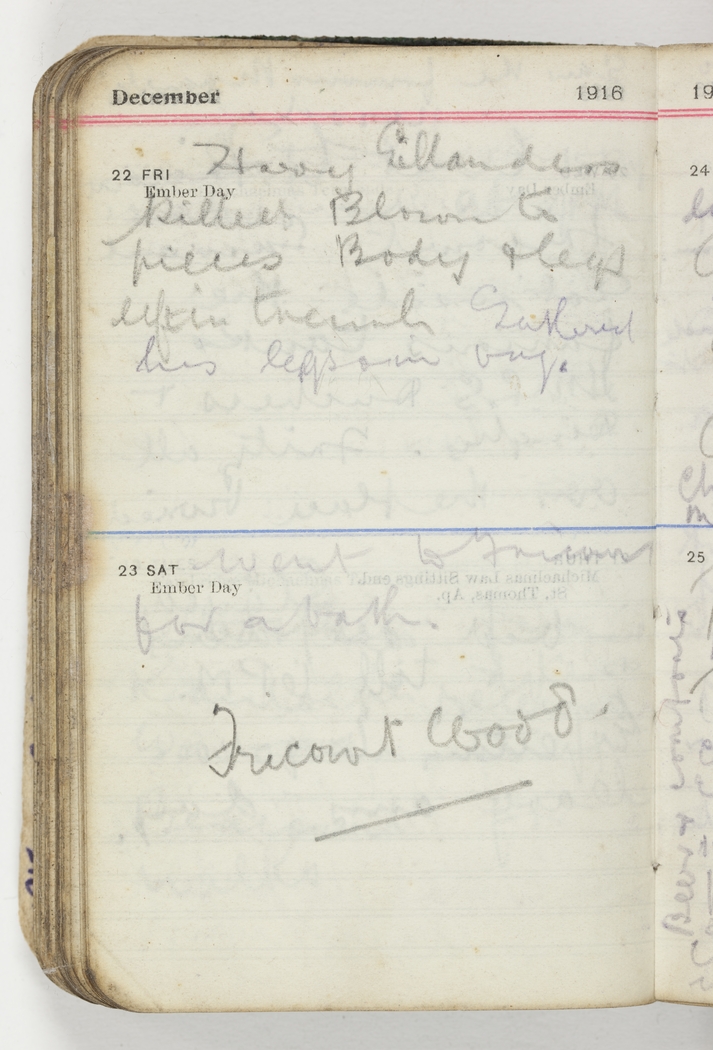 December 1916
22 FRI Harry Gillanders
Ember Day
killed Blown to
pieces Body & legs
left in trench Gathered
his legs in bag.
23 SAT went to Fricourt
Ember Day
for a bath.
Fricourt Wood.
19
24
25